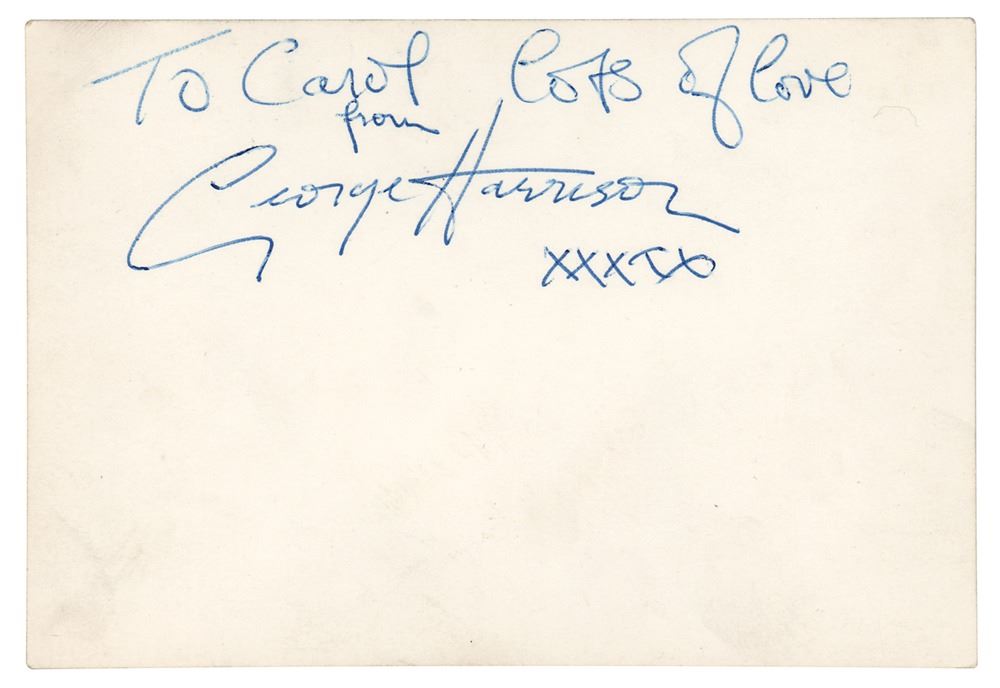 To Carol lots of love
from
George Harrison
xxxxx